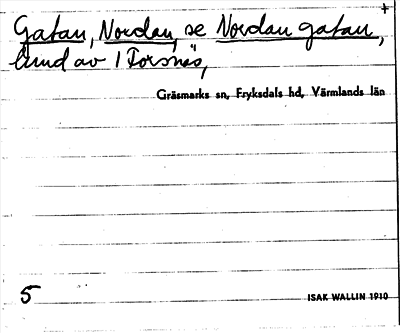 +
Gatan, Nordan, se Nordan gatan,
lund av 1 Torsnäs,
Gräsmarks sn, Fryksdals hd, Värmlands län
5
ISAK WALLIN 1910